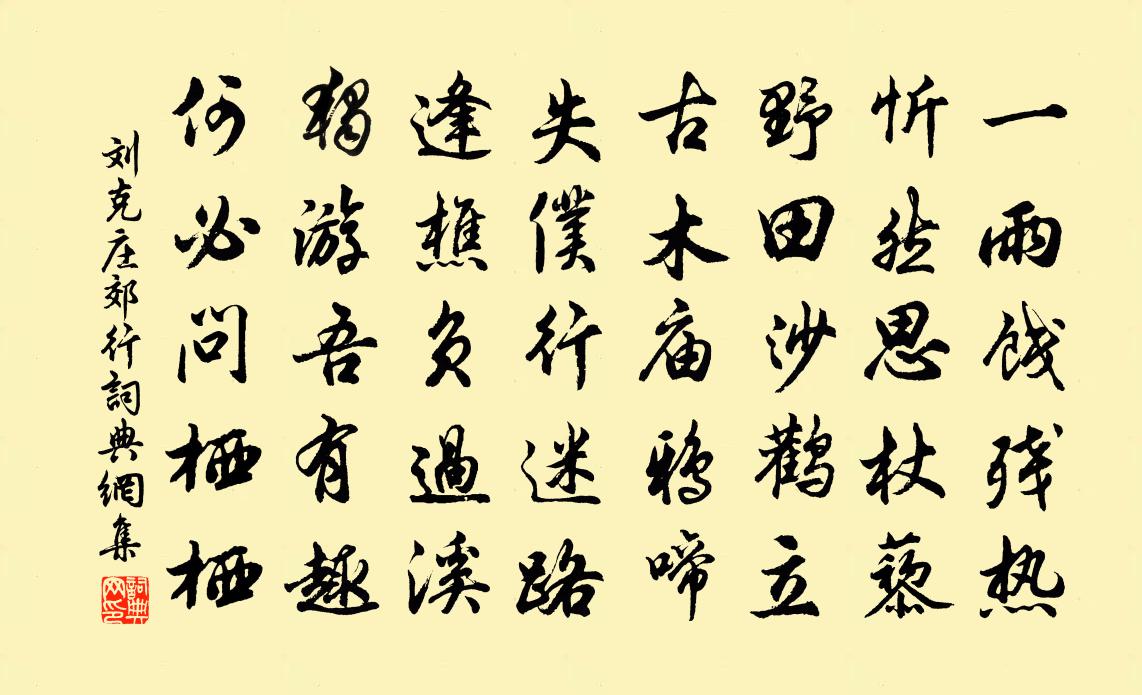 一雨饯残热
忻然思杖藜
野田沙鹳立
古木庙鸦啼
失僕行迷路
逢樵负過溪
獨游吾有趣
何必问栖栖
刘克庄郊行詞典網集
詞典网印